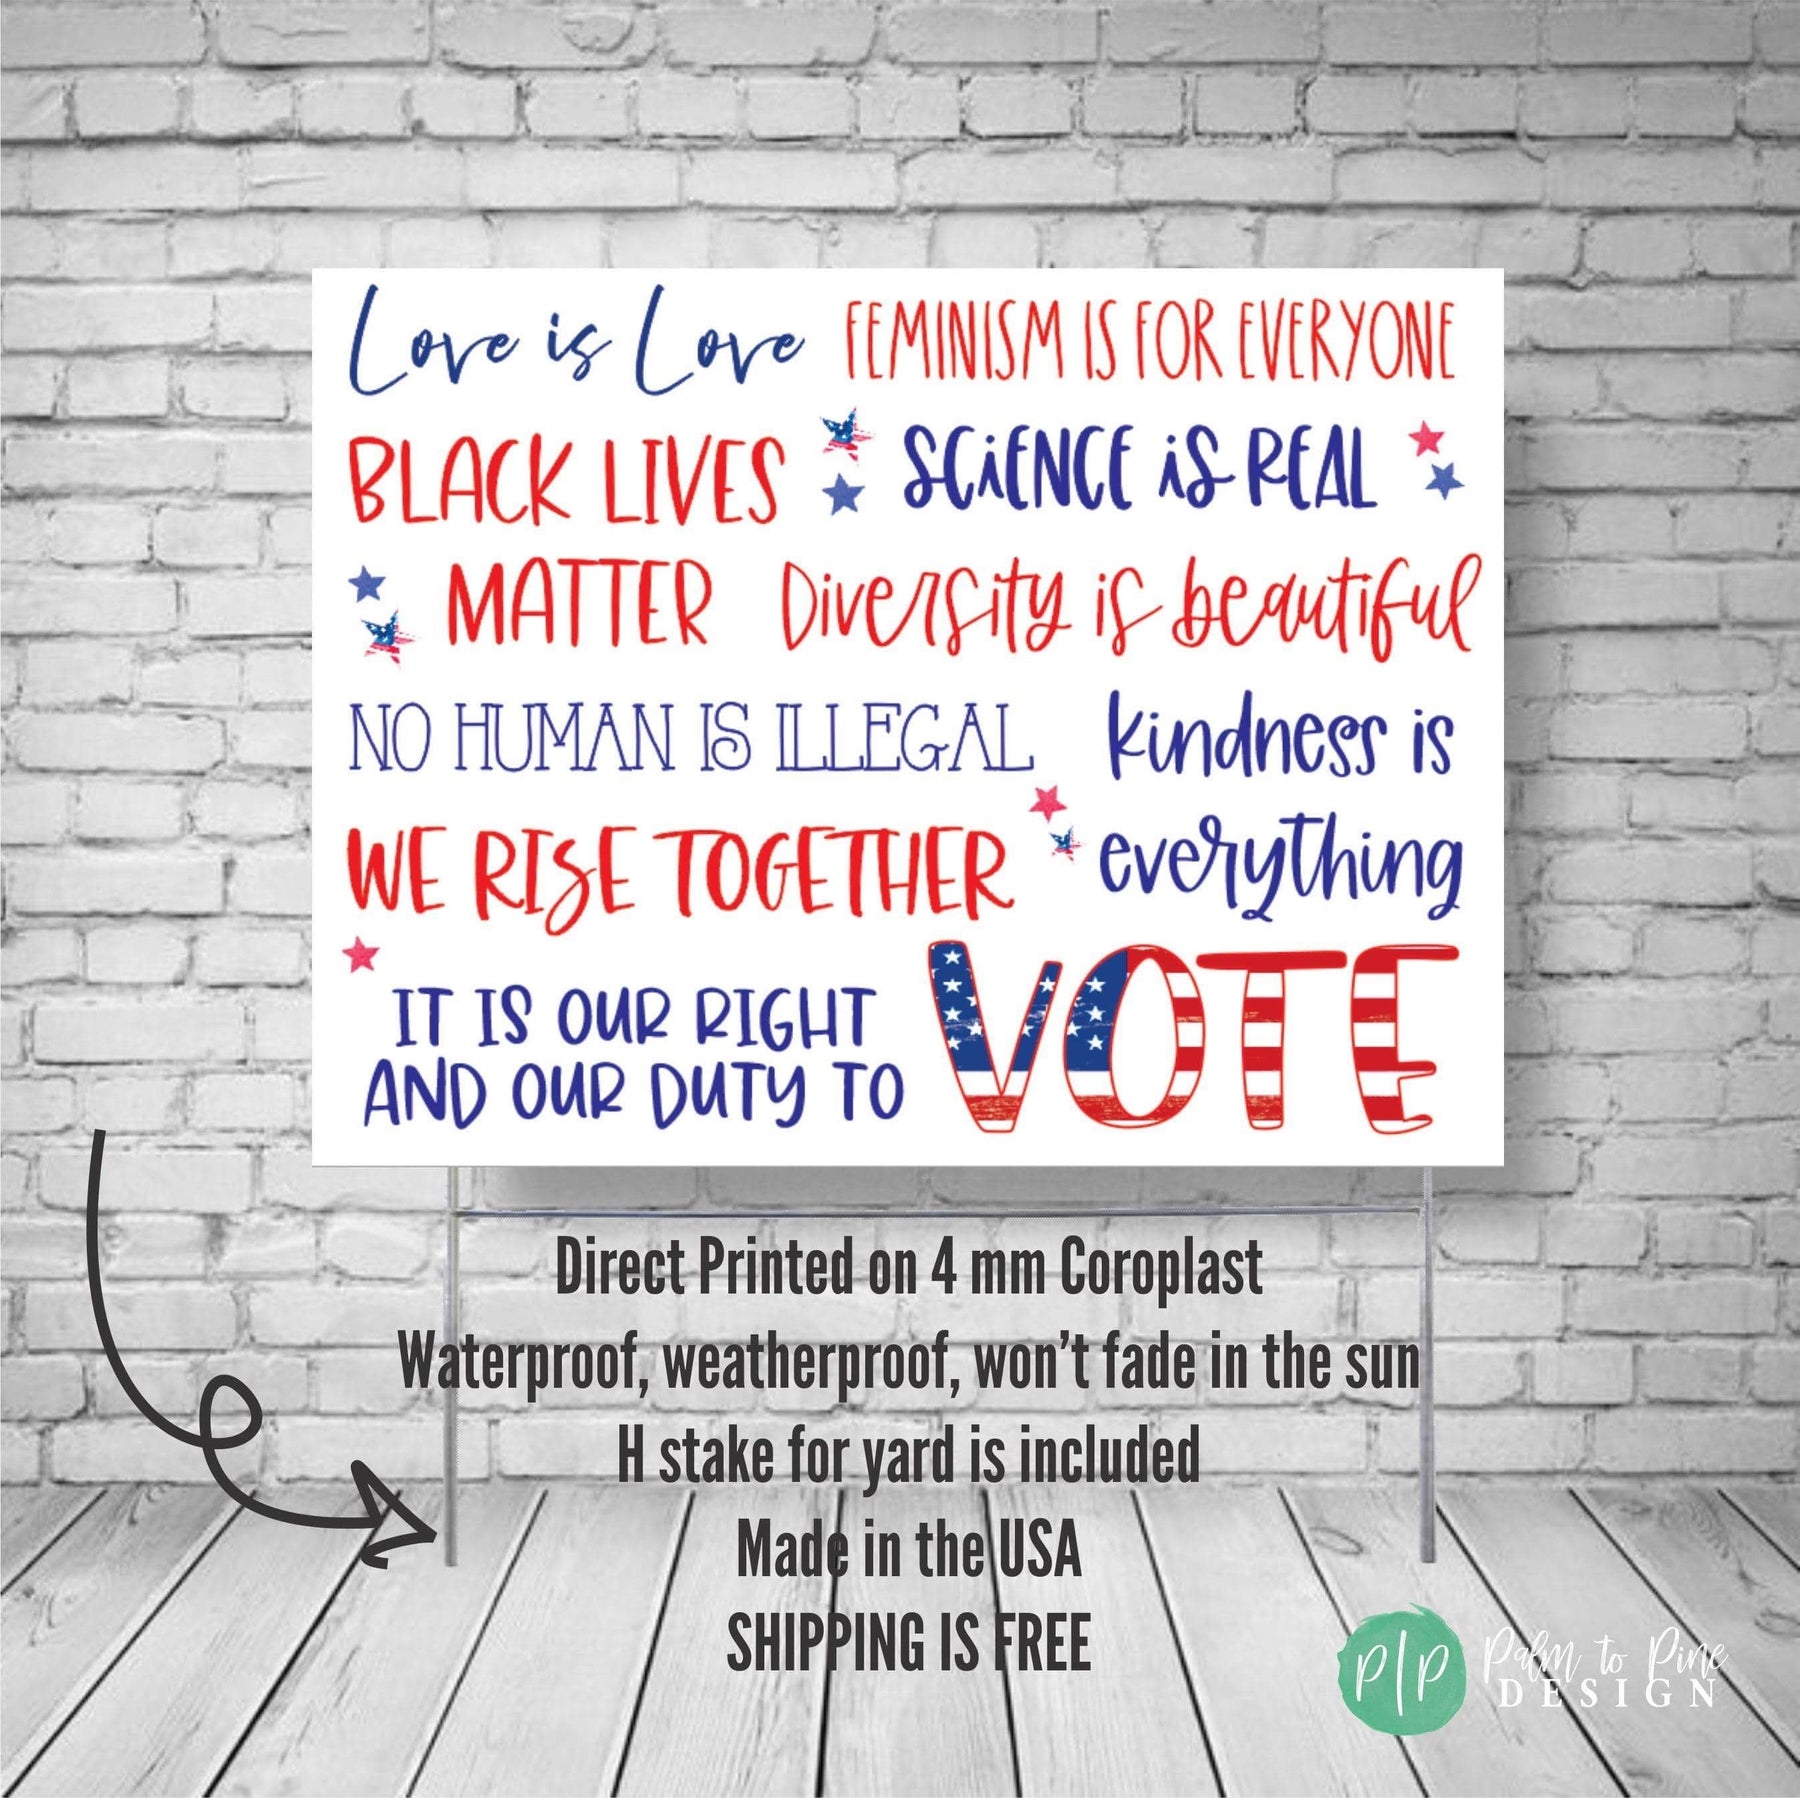 Love is Love FEMINISM IS FOR EVERYONE
BLACK LIVES SCiENCE iS REAL
MATTER Diversity is beautiful
NO HUMAN IS ILLEGAL kindness is
WE RISE TOGETHER everything
IT IS OUR RIGHT
AND OUR DUTY TO VOTE
Direct Printed on 4 mm Coroplast
Waterproof, weatherproof, won't fade in the sun
H stake for yard is included
Made in the USA
SHIPPING IS FREE
P|P Palm to Pine
DESIGN